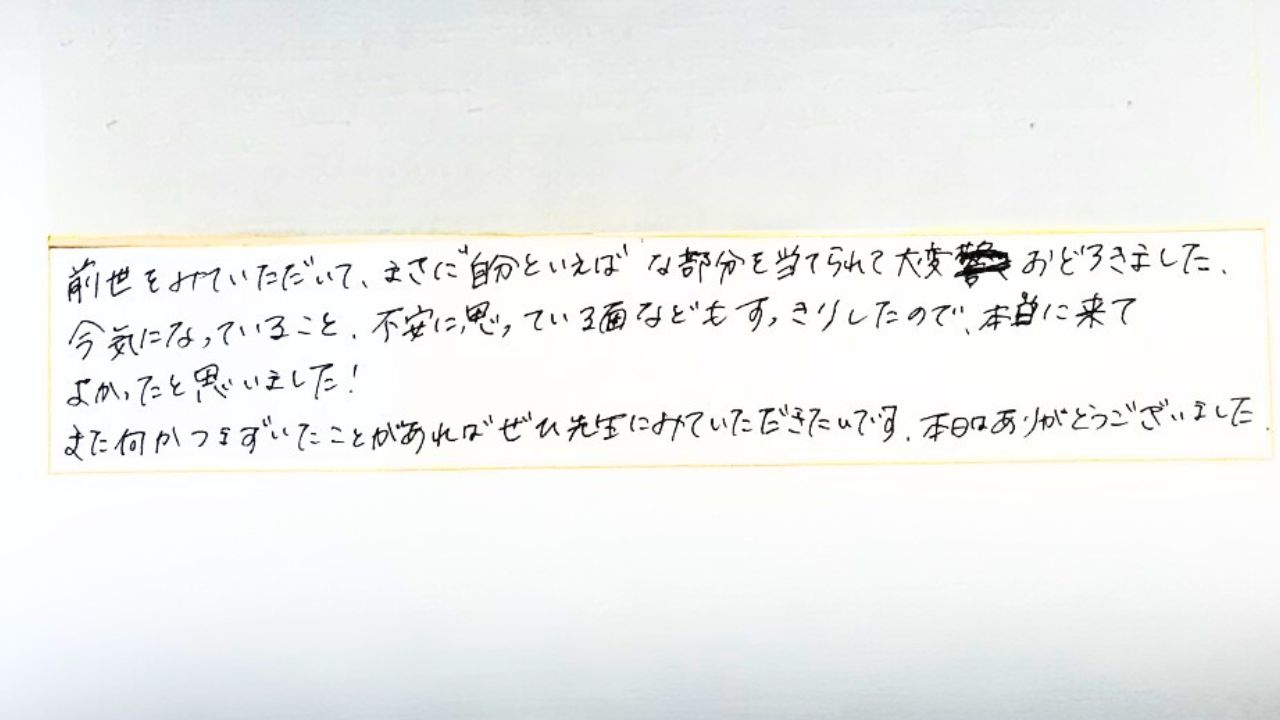 前世をみていただいて、まさに"自分といえば"な部分を当てられて大変おどろきました。
今気になっていること、不安に思っている面などもすっきりしたので、本当に来て
よかったと思いました!
また何かつまずいたことがあればぜひ先生にみていただきたいです。本日はありがとうございました。